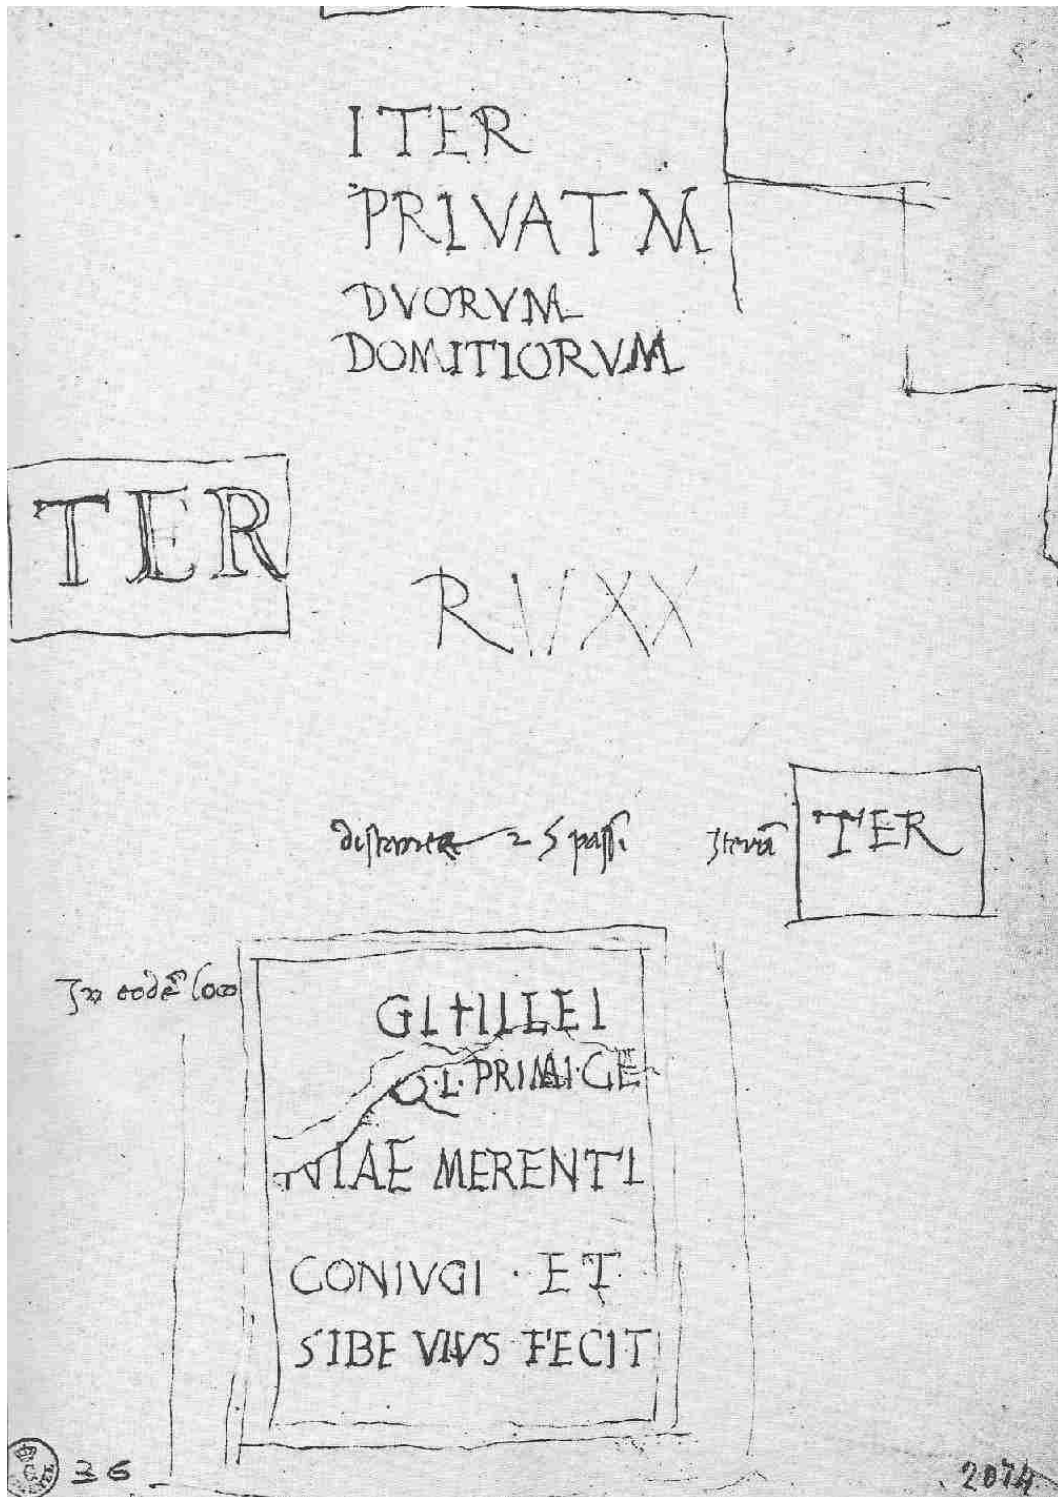 ITER
PRIVATM
DVORVM
DOMITIORVM
TER
R V XX
distante 25 passi
Iterũ TER
In eodẽ loco
Q·L·PRIMI·GE
NIAE MERENTI
CONIVGI · ET
SIBE VIVS FECIT
36
2074